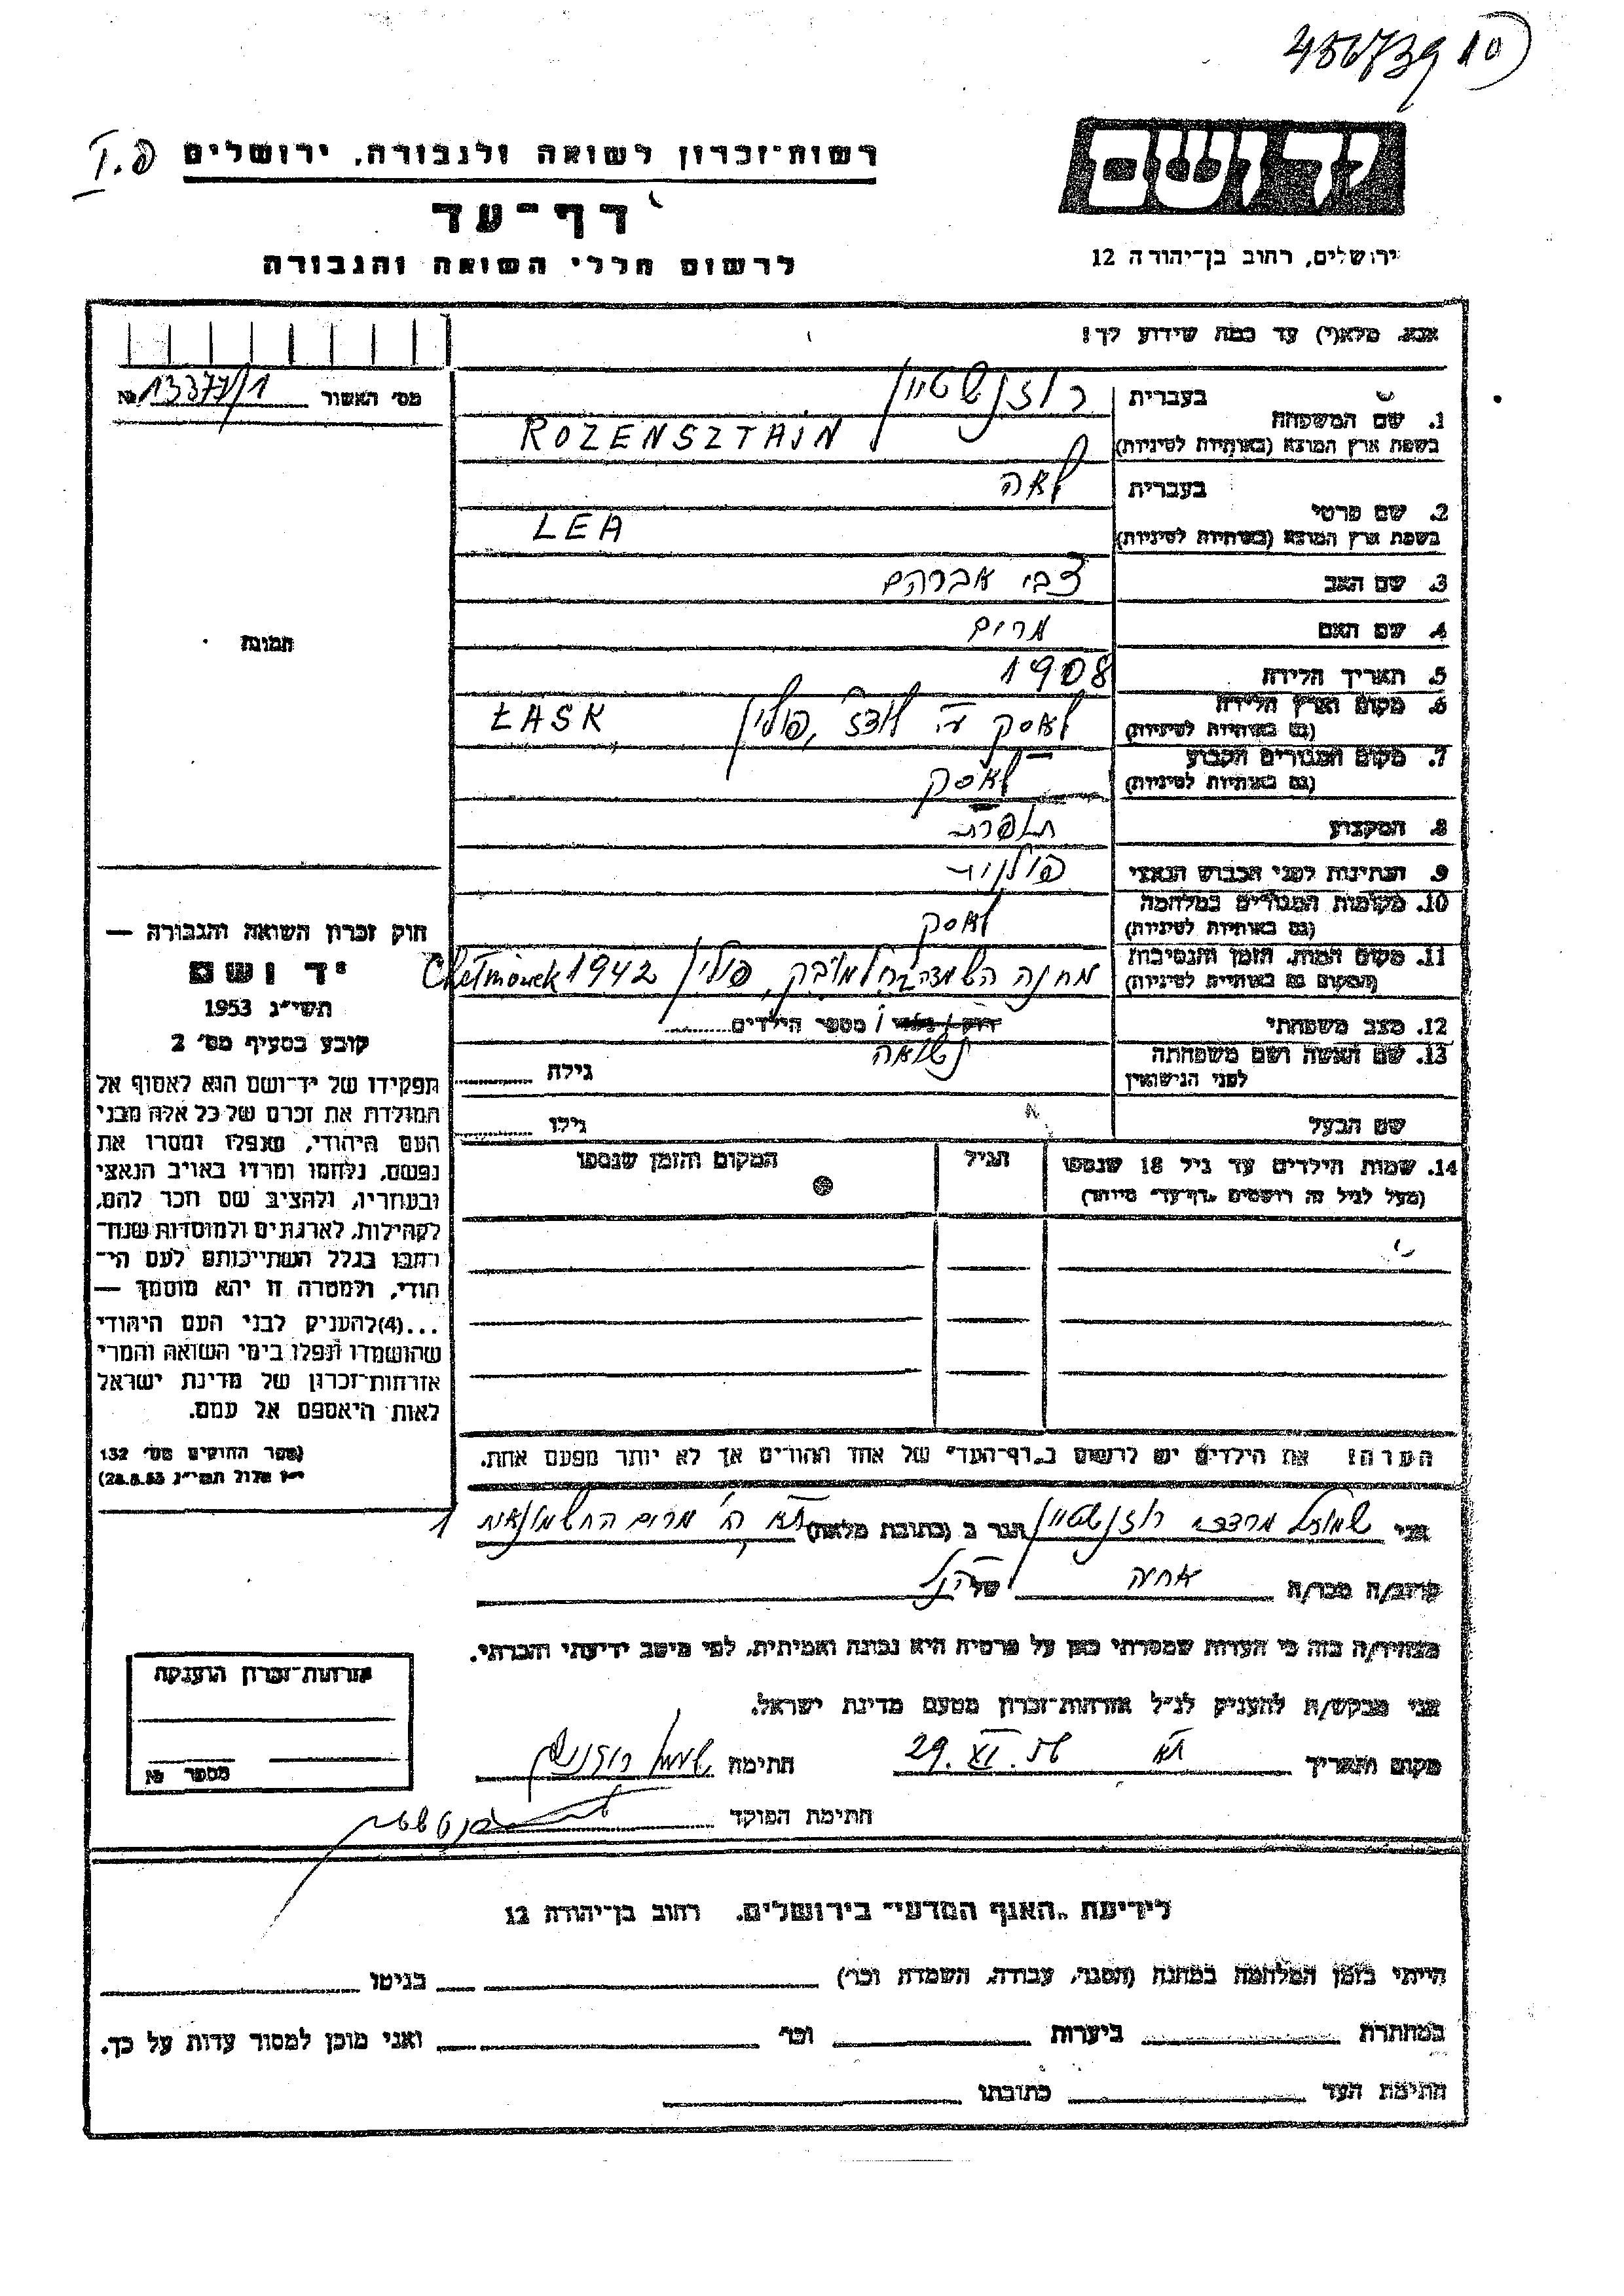 456739 10
רשות־זכרון לשואה ולגבורה, ירושלים
פ.I
דף־עד
לרשום חללי השואה והגבורה
יד ושם
ירושלים, רחוב בן־יהודה 12
אנא, מלא(י) עד כמה שידוע לך!
מס׳ האשור 13377/1 №
תמונה
1. שם המשפחה
בעברית רוזנשטיין
בשפת ארץ המוצא (באותיות לטיניות) ROZENSZTAJN
2. שם פרטי
בעברית לאה
בשפת ארץ המוצא (באותיות לטיניות) LEA
3. שם האב צבי אברהם
4. שם האם מרים
5. תאריך הלידה 1908
6. מקום וארץ הלידה לאסק ע״י לודז׳, פולין ŁASK,
(גם באותיות לטיניות)
7. מקום המגורים הקבוע לאסק
(גם באותיות לטיניות)
8. המקצוע תופרת
9. הנתינות לפני הכבוש הנאצי פולנית
10. מקומות המגורים במלחמה לאסק
(גם באותיות לטיניות)
11. מקום המות, הזמן והנסיבות מחנה השמדה פולין 1942
(המקום גם באותיות לטיניות)
12. מצב משפחתי / מספר הילדים
נשואה
13. שם האשה ושם משפחתה
לפני הנישואין
גילה
שם הבעל גילו
14. שמות הילדים עד גיל 18 שנספו
(מעל לגיל זה רושמים „דף־עד״ מיוחד)
הגיל
המקום והזמן שנספו
חוק זכרון השואה והגבורה —
יד ושם
תשי״ג 1953
קובע בסעיף מס׳ 2
תפקידו של יד־ושם הוא לאסוף אל
המולדת את זכרם של כל אלה מבני
העם היהודי, שנפלו ומסרו את
נפשם, נלחמו ומרדו באויב הנאצי
ובעוזריו, ולהציב שם וזכר להם,
לקהילות, לארגונים ולמוסדות שנח־
רבו בגלל השתייכותם לעם הי־
הודי, ולמטרה זו יהא מוסמך —
...(4)להעניק לבני העם היהודי
שהושמדו ונפלו בימי השואה והמרי
אזרחות־זכרון של מדינת ישראל
לאות היאספם אל עמם.
(ספר החוקים מס׳ 132
י״ז אלול תשי״ג 28.8.53)
הערה: את הילדים יש לרשום ב„דף־העד״ של אחד ההורים אך לא יותר מפעם אחת.
אני שמואל מרדכי רוזנשטיין הגר ב (כתובת מלאה) ת״א רח׳ מרים החשמונאית 1
קרוב/ה מכר/ה אחיה של הנ״ל
מצהיר/ה בזה כי העדות שמסרתי כאן על פרטיה היא נכונה ואמיתית, לפי מיטב ידיעתי והכרתי.
אני מבקש/ת להעניק לנ״ל אזרחות־זכרון מטעם מדינת ישראל.
מקום ותאריך ת״א 29. XI. חתימה
חתימת הפוקד
אזרחות־זכרון הוענקה
מספר №
לידיעת „האגף המדעי״ בירושלים, רחוב בן־יהודה 12
הייתי בזמן המלחמה במחנה (הסגר, עבודה, השמדה וכו׳) בגיטו
במחתרת ביערות וכו׳ ואני מוכן למסור עדות על כך.
חתימת העד כתובתו